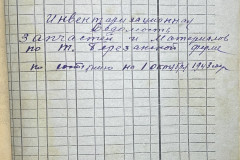 Инвентаризационная
Ведомость
Запчастей и материалов
по т. Березанской ферме
по состоянию на 1 октября 1948 года